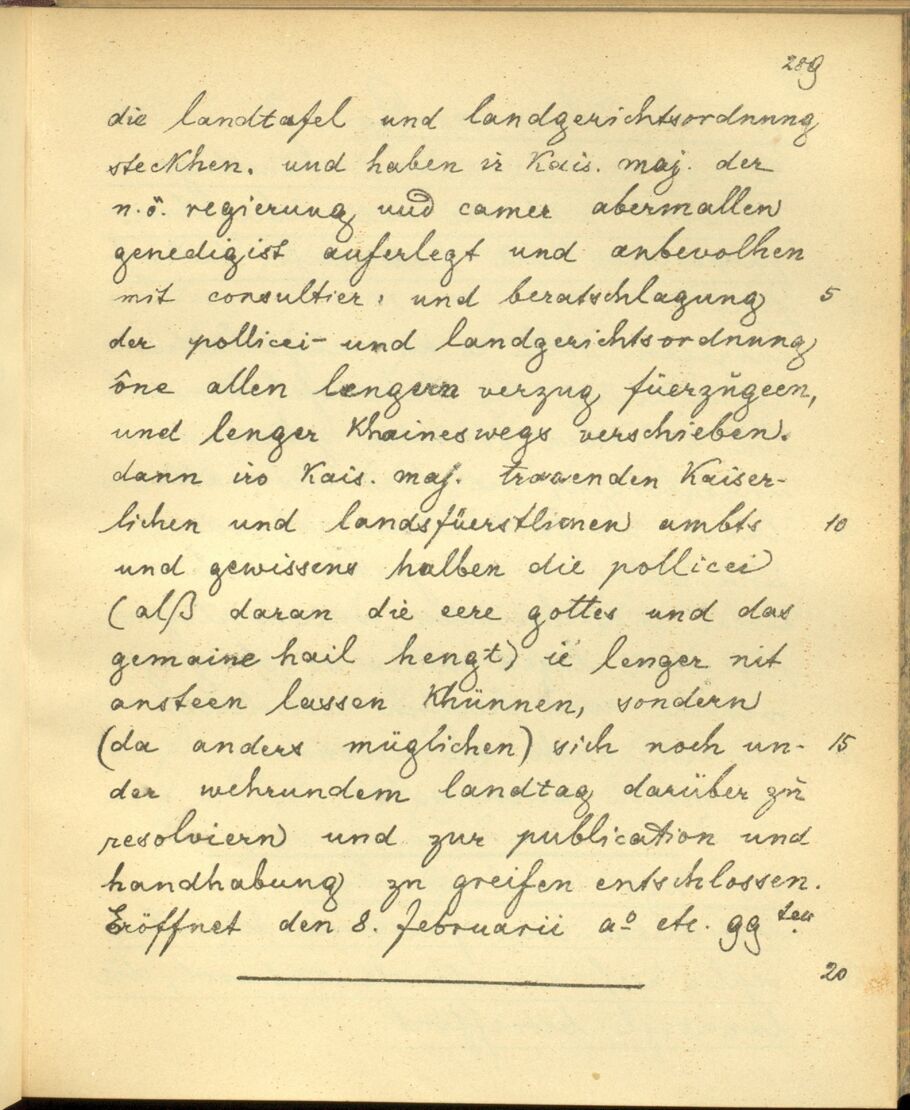 289
die landtafel und landgerichtsordnung
steckhen. und haben ir Kais. maj. der
n.ö. regierung und camer abermallen
genedigist auferlegt und anbevolhen
mit consultier: und beratschlagung 5
der pollicei- und landgerichtsordnung
ône allen lengern verzug füerzůgeen,
und lenger Khaineswegs verschieben.
dann iro Kais. maj. tragenden Kaiser-
lichen und landsfüerstlichen ambts 10
und gewissens halben die pollicei
(alß daran die eere gottes und das
gemaine hail hengt) ie lenger nit
ansteen lassen Khünnen, sondern
(da anders müglichen) sich noch un- 15
der wehrundem landtag darüber zů
resolviern und zur publication und
handhabung zu greifen entschlossen.
Eröffnet den 8. februarii aº etc. 99ten.
20